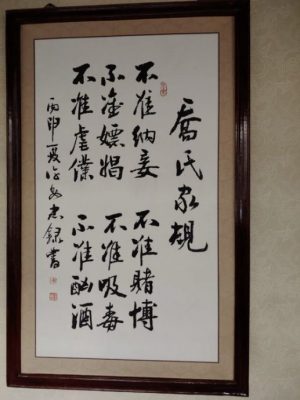 喬氏家規
不准納妾 不准賭博
不准嫖娼 不准吸毒
不准虐僕 不准酗酒
丙申夏 忠録書